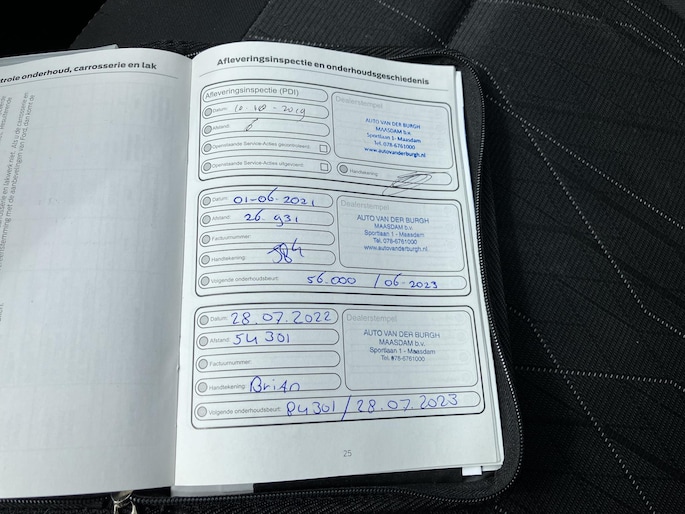 trole onderhoud, carrosserie en lak
Afleveringsinspectie en onderhoudsgeschiedenis
Afleveringsinspectie (PDI)
Datum:
2019
Afstand:
Openstaande Service-Acties gecontroleerd:
Openstaande Service-Acties uitgevoerd:
Dealerstempel
AUTO VAN DER BURGH
MAASDAM b.v.
Sportlaan 1 - Maasdam
Tel. 078-6761000
www.autovanderburgh.nl
Handtekening:
Datum: 01-06-2021
Afstand: 26.931
Factuurnummer:
Handtekening:
Volgende onderhoudsbeurt: 56.000 / 06-2023
Dealerstempel
AUTO VAN DER BURGH
MAASDAM b.v.
Sportlaan 1 - Maasdam
Tel. 078-6761000
www.autovanderburgh.nl
Datum: 28.07.2022
Afstand: 54301
Factuurnummer:
Handtekening: Brian
Volgende onderhoudsbeurt: 84301 / 28.07.2023
Dealerstempel
AUTO VAN DER BURGH
MAASDAM b.v.
Sportlaan 1 - Maasdam
Tel. 078-6761000
25